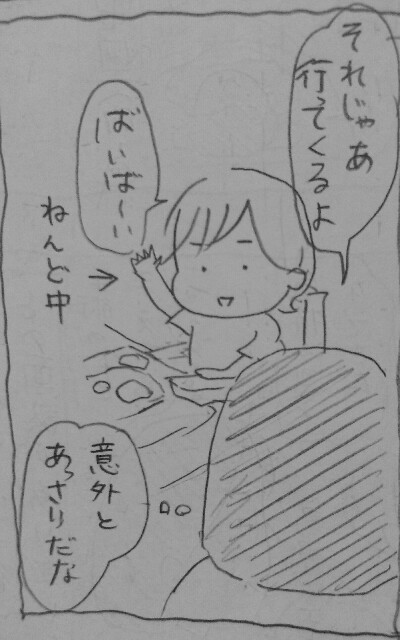 それじゃあ
行ってくるよ
ばいば〜い
ねんど中
意外と
あっさりだな